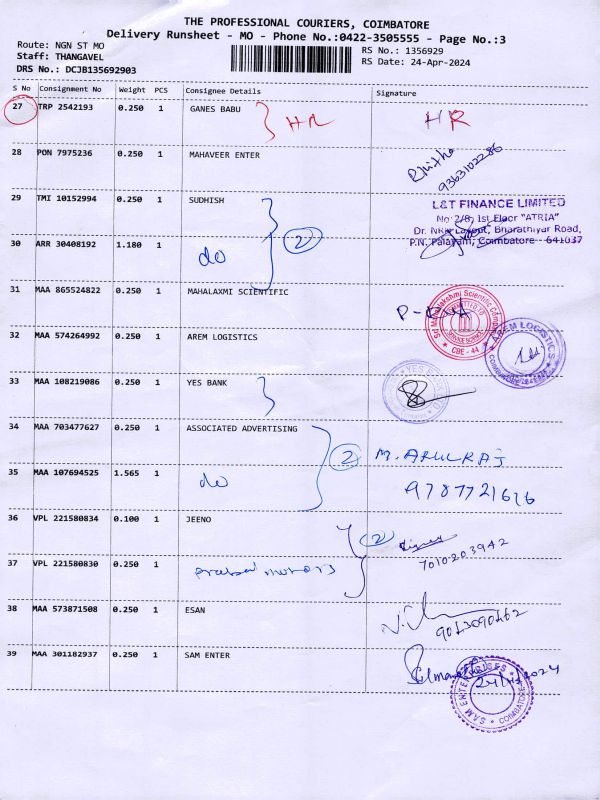 THE PROFESSIONAL COURIERS, COIMBATORE
Delivery Runsheet - MO - Phone No.:0422-3505555 - Page No.:3
Route: NGN ST MO
Staff: THANGAVEL
DRS No.: DCJB135692903
RS No.: 1356929
RS Date: 24-Apr-2024
S No Consignment No Weight PCS Consignee Details Signature
27 TRP 2542193 0.250 1 GANES BABU HR HR
28 PON 7975236 0.250 1 MAHAVEER ENTER
9363102286
29 TMI 10152994 0.250 1 SUDHISH
L&T FINANCE LIMITED
No:2/8, 1st Floor "ATRIA"
Dr. NRN Layout, Bharathiyar Road,
P.N. Palayam, Coimbatore - 641037
30 ARR 30408192 1.180 1 do 2
31 MAA 865524822 0.250 1 MAHALAXMI SCIENTIFIC
CBE - 44
32 MAA 574264992 0.250 1 AREM LOGISTICS
AREM LOGISTICS
33 MAA 108219086 0.250 1 YES BANK
34 MAA 703477627 0.250 1 ASSOCIATED ADVERTISING
2 M. ARULRAJ
35 MAA 107694525 1.565 1 do 9787721616
36 VPL 221580834 0.100 1 JEENO
2
7010203942
37 VPL 221580830 0.250 1
38 MAA 573871508 0.250 1 ESAN
39 MAA 301182937 0.250 1 SAM ENTER
SAM ENTERPRISES COIMBATORE